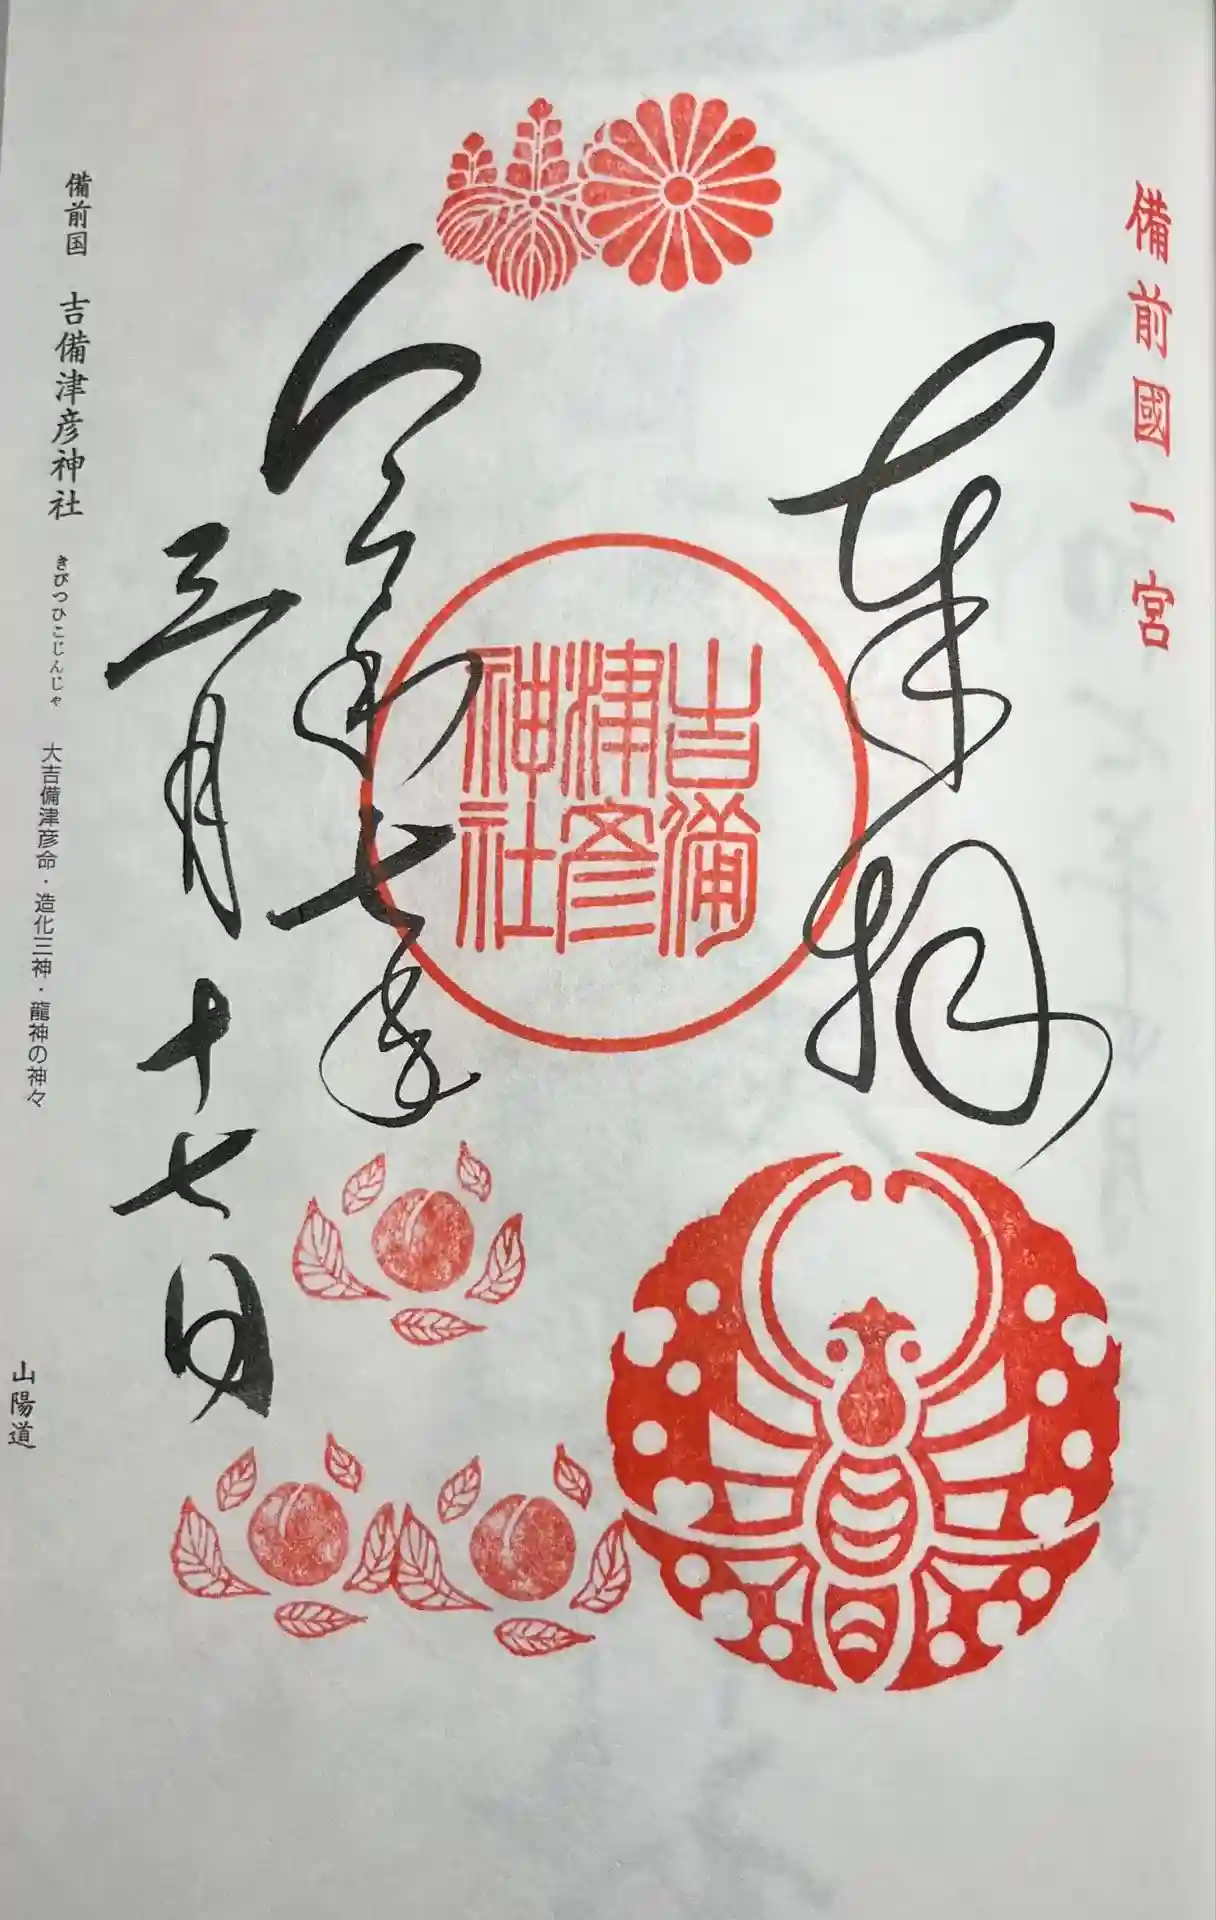 備前國一宮
奉拝
吉備
津彦
神社
令和七年
三月十七日
備前国 吉備津彦神社 きびつひこじんじゃ 大吉備津彦命・造化三神・龍神の神々 山陽道